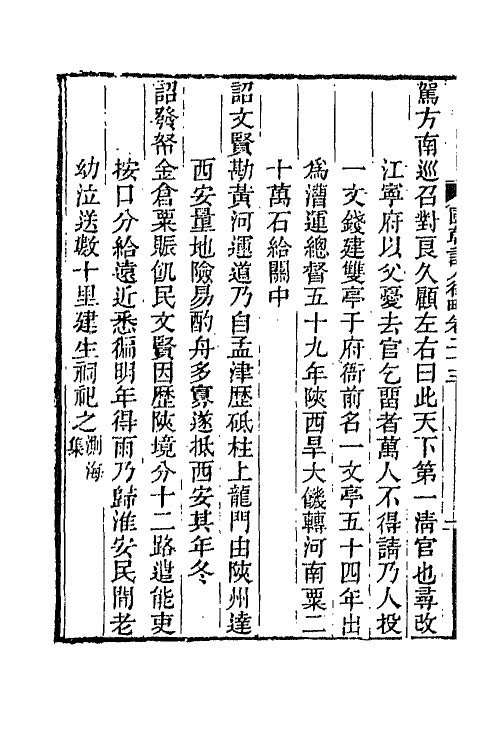 駕方南巡召對良久顧左右曰此天下第一清官也尋改
江寧府以父憂去官乞畱者萬人不得請乃人投
一文錢建雙亭于府衙前名一文亭五十四年出
為漕運總督五十九年陝西旱大饑轉河南粟二
十萬石給關中
詔文賢勘黃河運道乃自孟津歷砥柱上龍門由陝州達
西安量地險易酌舟多寡遂抵西安其年冬
詔發帑金倉粟賑飢民文賢因歷陝境分十二路遣能吏
按口分給遠近悉徧明年得雨乃歸淮安民間老
幼泣送數十里建生祠祀之測海
集